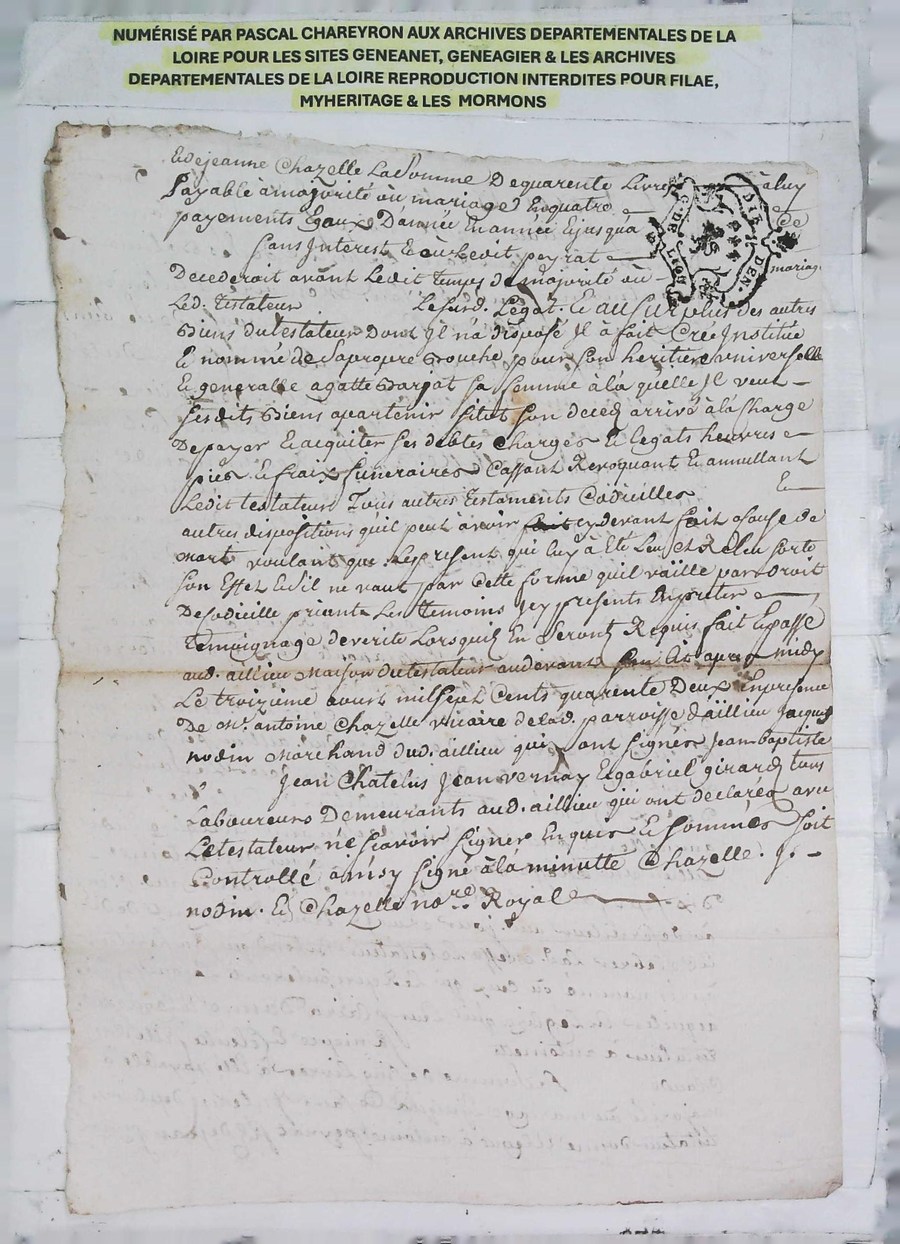 NUMÉRISÉ PAR PASCAL CHAREYRON AUX ARCHIVES DEPARTEMENTALES DE LA
LOIRE POUR LES SITES GENEANET, GENEAGIER & LES ARCHIVES
DEPARTEMENTALES DE LA LOIRE REPRODUCTION INTERDITES POUR FILAE,
MYHERITAGE & LES MORMONS
Et de jeanne Chazelle La Somme De quarente Livres à luy
Payable à majorité ou mariage En quatre
payements Egaux D'année En année Ejusqua de
Sans Interest Et où Ledit peyrat
Decederoit avant Ledit temps de majorité ou mariage
Led. testateur Le susd. Legat. Et au Surplus des autres
Biens du testateur Dont Il n'a disposé Il à fait Créé Institué
Et nommé de Sa propre Bouche pour Son heritiere universelle
Et generalle agatte Barjat Sa femme à la quelle Il veut
Ses dits Biens apartenir Sitot Son deced arrivé à la Charge
De payer Et acquiter Ses debtes Charges Et legats heuvres
pies Et fraix funeraires Cassant Revoquant Et annullant
Ledit testateur Tous autres testaments Codicilles Et
autres dispositions quil peut avoir cy devant fait a Cause de
Mort voulant que Le present qui luy à Eté Leu et Releu Sorte
Son Effet Et Sil ne vaut par cette forme quil vaille par Droit
De Codicille priant Les temoins Icy presents En porter
temoignage de verité Lorsquils En Seront Requis fait Et passé
aud. aillieu Maison du testateur apres midy
Le troizieme avout mil Sept Cents quarente Deux En presence
De Mr. antoine Chazelle vicaire de lad. parroisse d'aillieu Jacques
nodin Marchand dud. aillieu qui ont Signés Jean baptiste
Jean Chatelus Jean vernay Et gabriel girard tous
Laboureurs Demeurants aud. aillieu qui ont declaréz avec
Le testateur ne Scavoir Signer Enquis Et Sommés Soit
Controllé Signé à la minutte Chazelle. J.
nodin. Et Chazelle nore. Royal